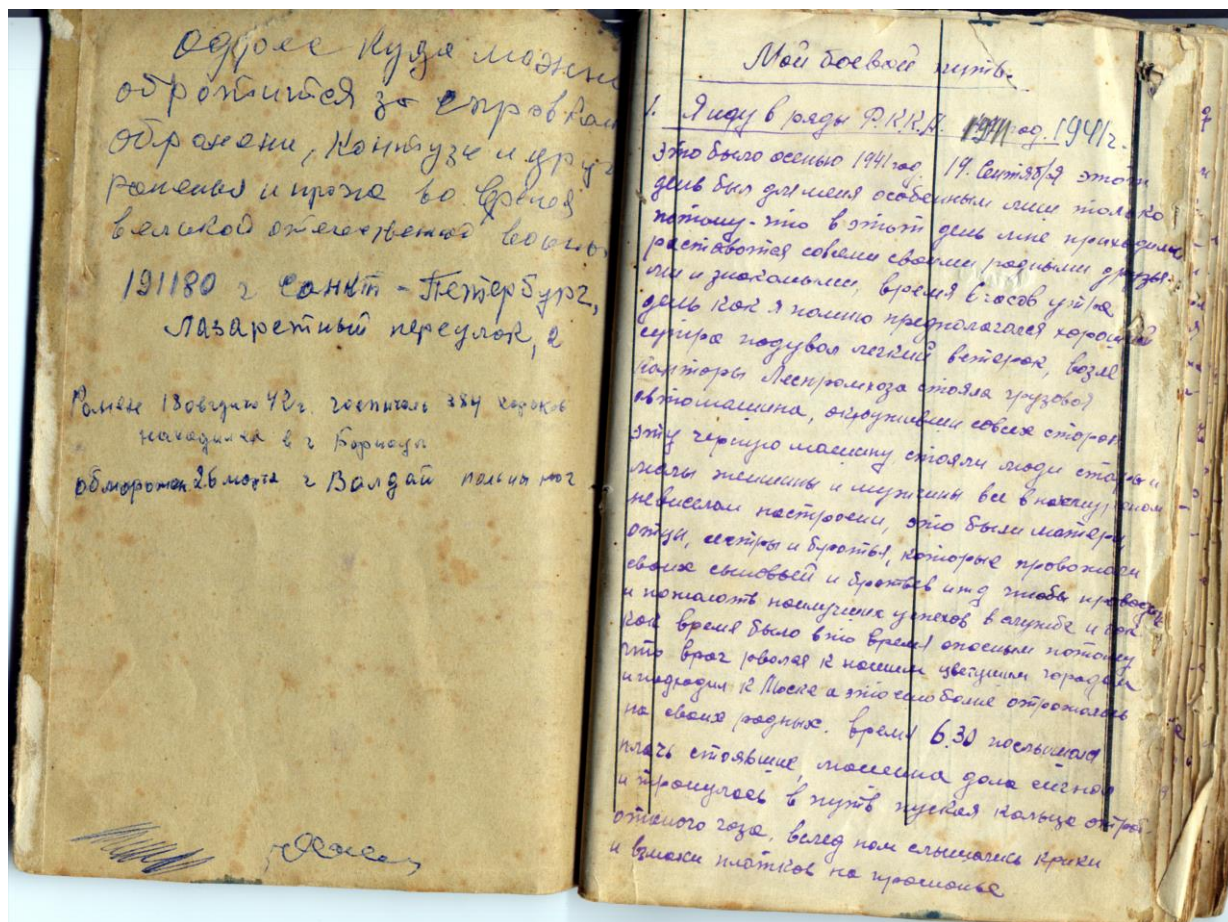 адрес куда можно
обротится за справкам
обранени, контузи и друг
раненья и прожа во время
великой отечественной войны
191180 г Санкт-Петербург,
Лазаретный переулок, 2
Ранен 18 августа 42г. госпиталь 384
находился в г
обморожен 26 марта г Валдай пальцы ног
Мой боевой путь.
1. Я иду в ряды Р.К.К.А. 1941 год. 1941г.
Это было осенью 1941 год. 19. Сентября этот
день был для меня особенным лиш только
потому-что в этот день мне приходилось
расставотся совсеми своими родными друзья-
ми и знакомыми, время 6 часов утра
день как я помню предполагался хороший
сутра подувал легкий ветерок, возле
канторы Леспромхоза стояла грузовая
автомашина, окружившии совсех сторон
эту чёрную машину стояли люди стары и
малы женщины и мужчины все в
невеселом настроени, это были матери,
отцы, сестры и братья, которые провожали
своих сыновьей и братьев итд чтобы проводить
и пожалать наилучших успехов в службе и так
как время было вто время опасным потому
что враг рвался к нашим цветущим городам
и подходил к Москве а это ещо более отрожалось
на своих родных. Время 6.30 послышался
плачь стоявших, машина дала сигнал
и тронулась в путь пуская кольца отроб
отанного газа, вслед нам слышались крики
и взмахи платков на прощанье